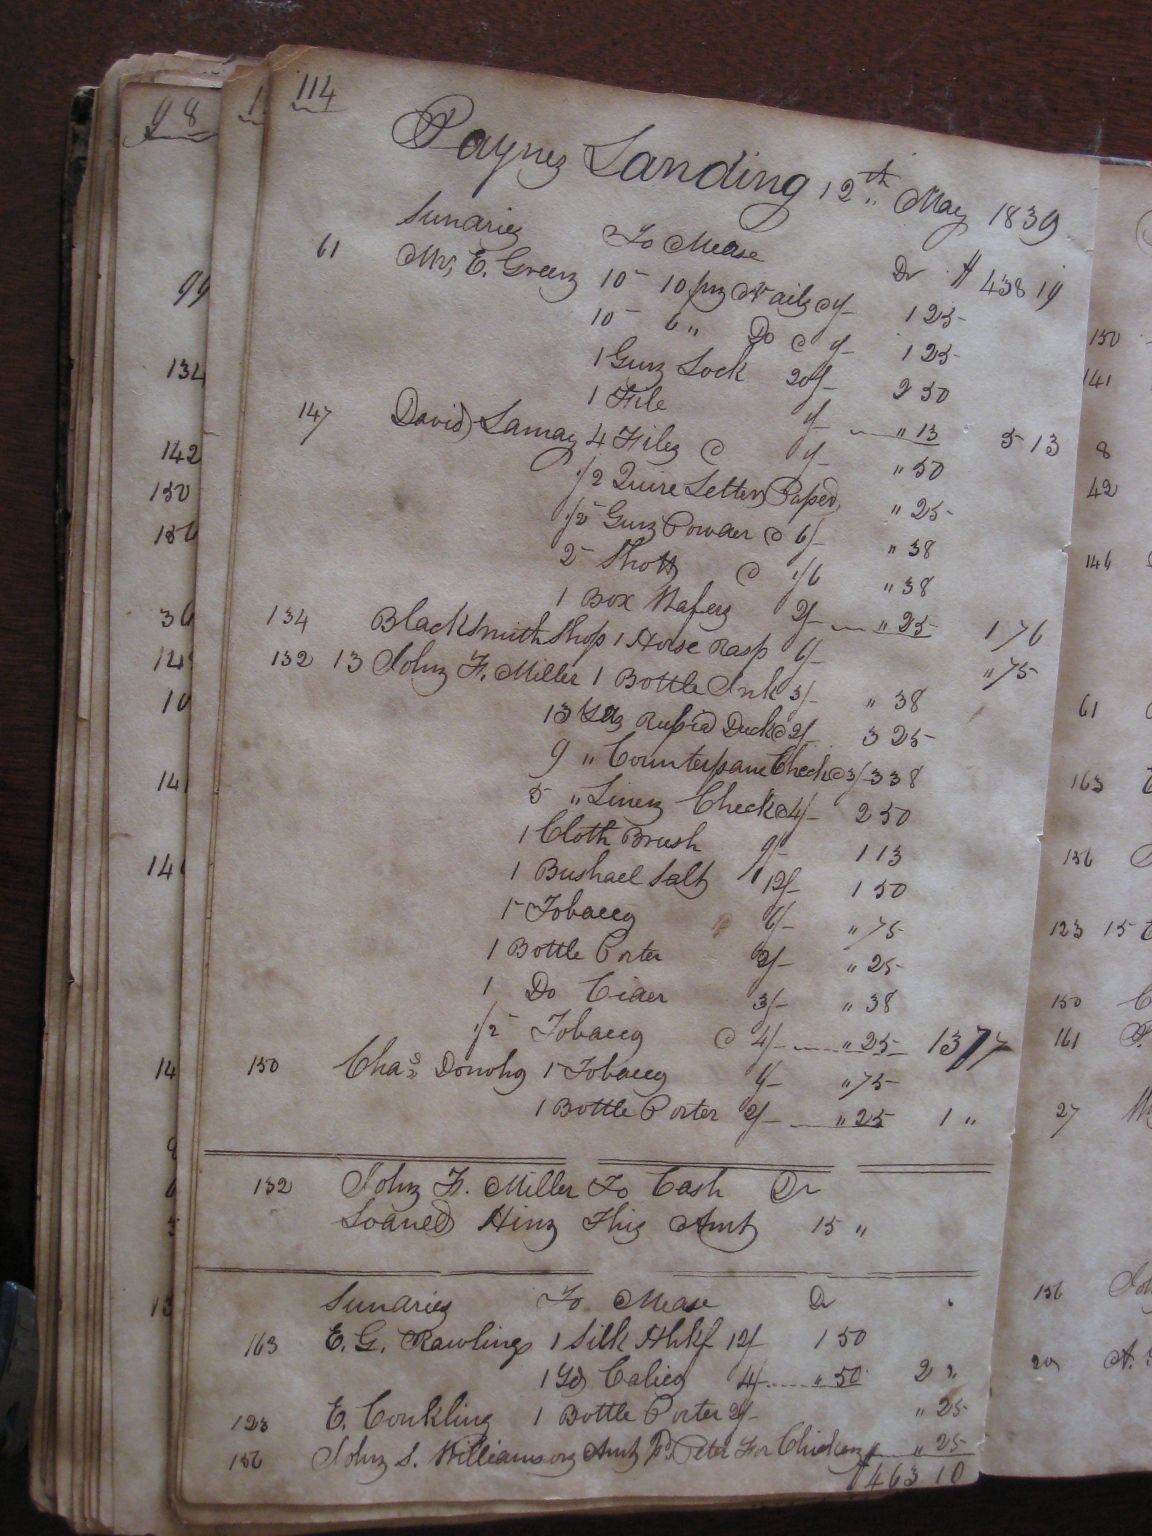 114
Paynes Landing 12th May 1839
Sundries To Mdse Dr $ 438 19
61 Mrs E. Greens 10 - 10 pny Nails @ 1/- 1 25
10 - 6 " Do @ 1/- 1 25
1 Gun Lock 20/- 2 50
1 File 1/- " 13 5 13
147 David Lamay 4 Files @ 1/- " 50
1/2 Quire Letter Paper " 25
1/2 Gun Powder @ 6/- " 38
2 Shott @ 1/6 " 38
1 Box Wafers 2/- " 25 1 76
134 Blacksmith Shop 1 Horse Rasp 6/- " 75
132 13 John F. Miller 1 Bottle Ink 3/- " 38
13 Yds Rusia Duck @ 2/- 3 25
9 " Counterpane Check @ 3/- 3 38
5 " Linen Check @ 4/- 2 50
1 Cloth Brush 9/- 1 13
1 Bushael Salt 12/- 1 50
1 Tobacco 6/- " 75
1 Bottle Porter 2/- " 25
1 Do Cider 3/- " 38
1/2 Tobacco @ 4/- " 25 13 77
150 Chas Donoho 1 Tobacco " 75
1 Bottle Porter 2/- " 25 1 "
132 John F. Miller To Cash Dr
Loaned Him This Amt 15 "
Sundries To Mdse Dr
163 E. G. Rawlings 1 Silk Hhkf 12/- 1 50
1 Yd Calico 4/- " 50 2 "
123 E. Conkling 1 Bottle Porter 2/- " 25
156 John S. Williamson Amt Pd Peter For Chicken " 25
$463 10
98
99
134
142
150
156
36
10
14
150
141
8
42
146
61
163
156
123 15
150
161
27
156
20